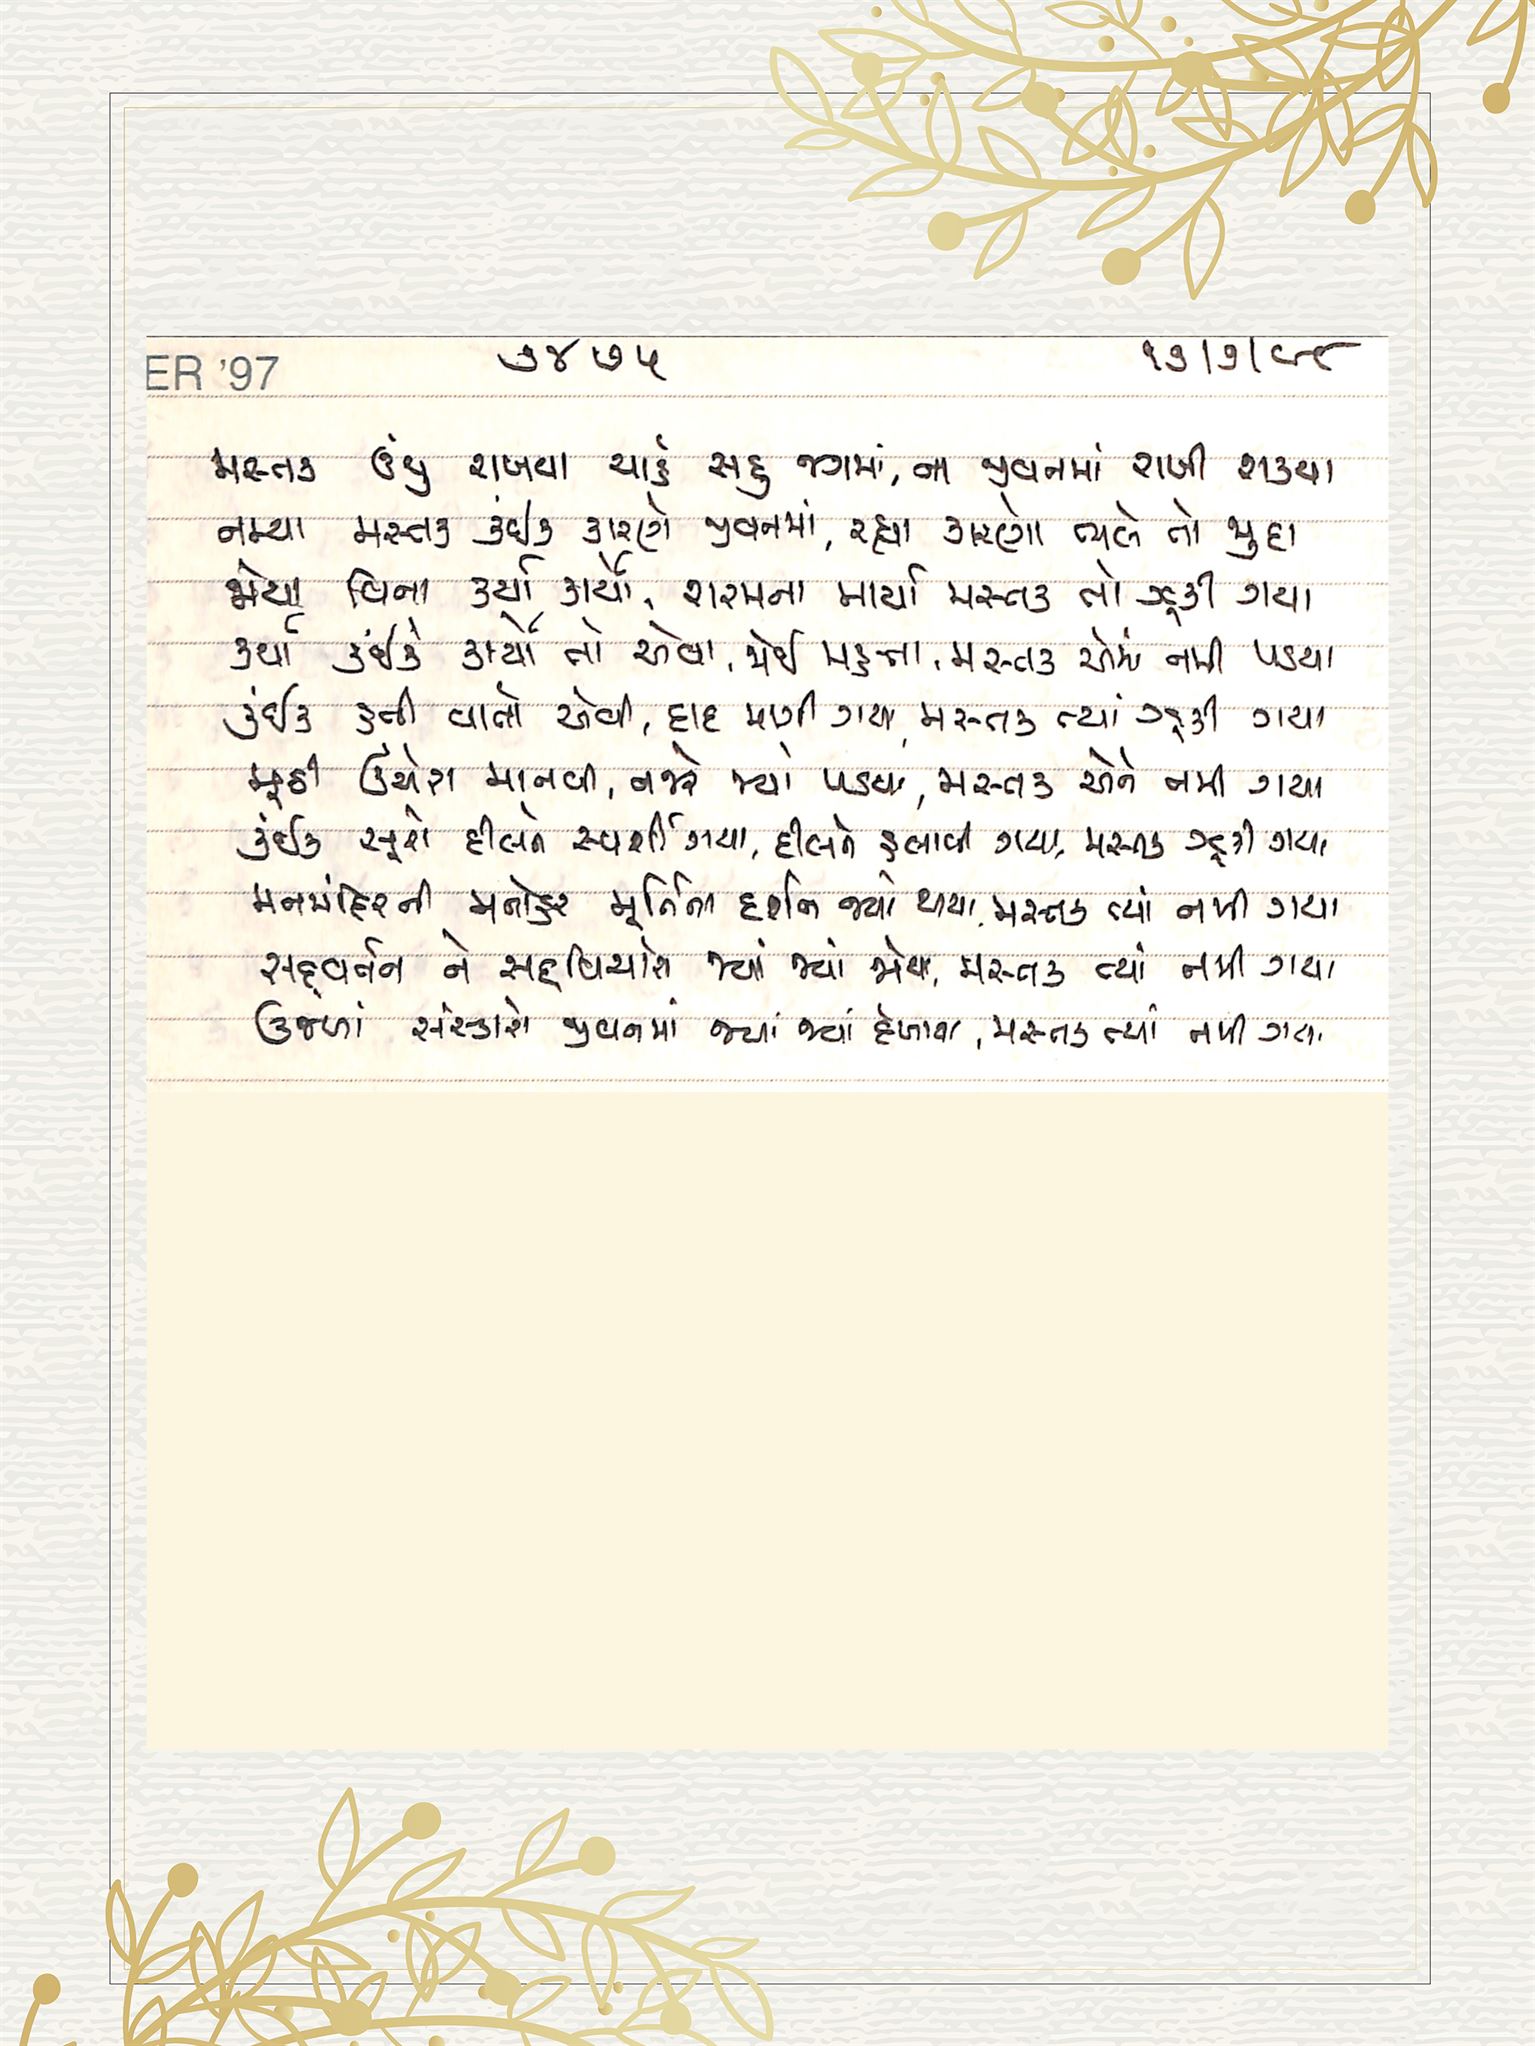 ER '97 ૭૪૭૫ ૧૭/૭/૯૮
મસ્તક ઉંચુ રાખવા ચાહે સહુ જગમાં, ના જીવનમાં રાખી શક્યા
નમ્યા મસ્તક કંઈક કારણે જીવનમાં, રહ્યા કારણો ભલે તો જુદા
જોયા વિના કર્યા કાર્યો, શરમના માર્યા મસ્તક તો ઝૂકી ગયા
કર્યા કંઈકે કાર્યો તો એવા, જોઈ મહાનતા, મસ્તક એમાં નમી પડયા
કંઈક હતી વાતો એવી, દાદ મળી ગયા, મસ્તક ત્યાં ઝૂકી ગયા
મૂઠી ઉંચેરા માનવી, નજરે જ્યાં પડયા, મસ્તક એને નમી ગયા
કંઈક સૂરો દીલને સ્પર્શી ગયા, દીલને હલાવી ગયા, મસ્તક ઝૂકી ગયા
મનમંદિરની મનોહર મૂર્તિના દર્શન જ્યાં થયા, મસ્તક ત્યાં નમી ગયા
સદ્દવર્તન ને સદ્દવિચારો જ્યાં જ્યાં જોયા, મસ્તક ત્યાં નમી ગયા
ઉજળાં સંસ્કારો જીવનમાં જ્યાં જ્યાં દેખાયા, મસ્તક ત્યાં નમી ગયા